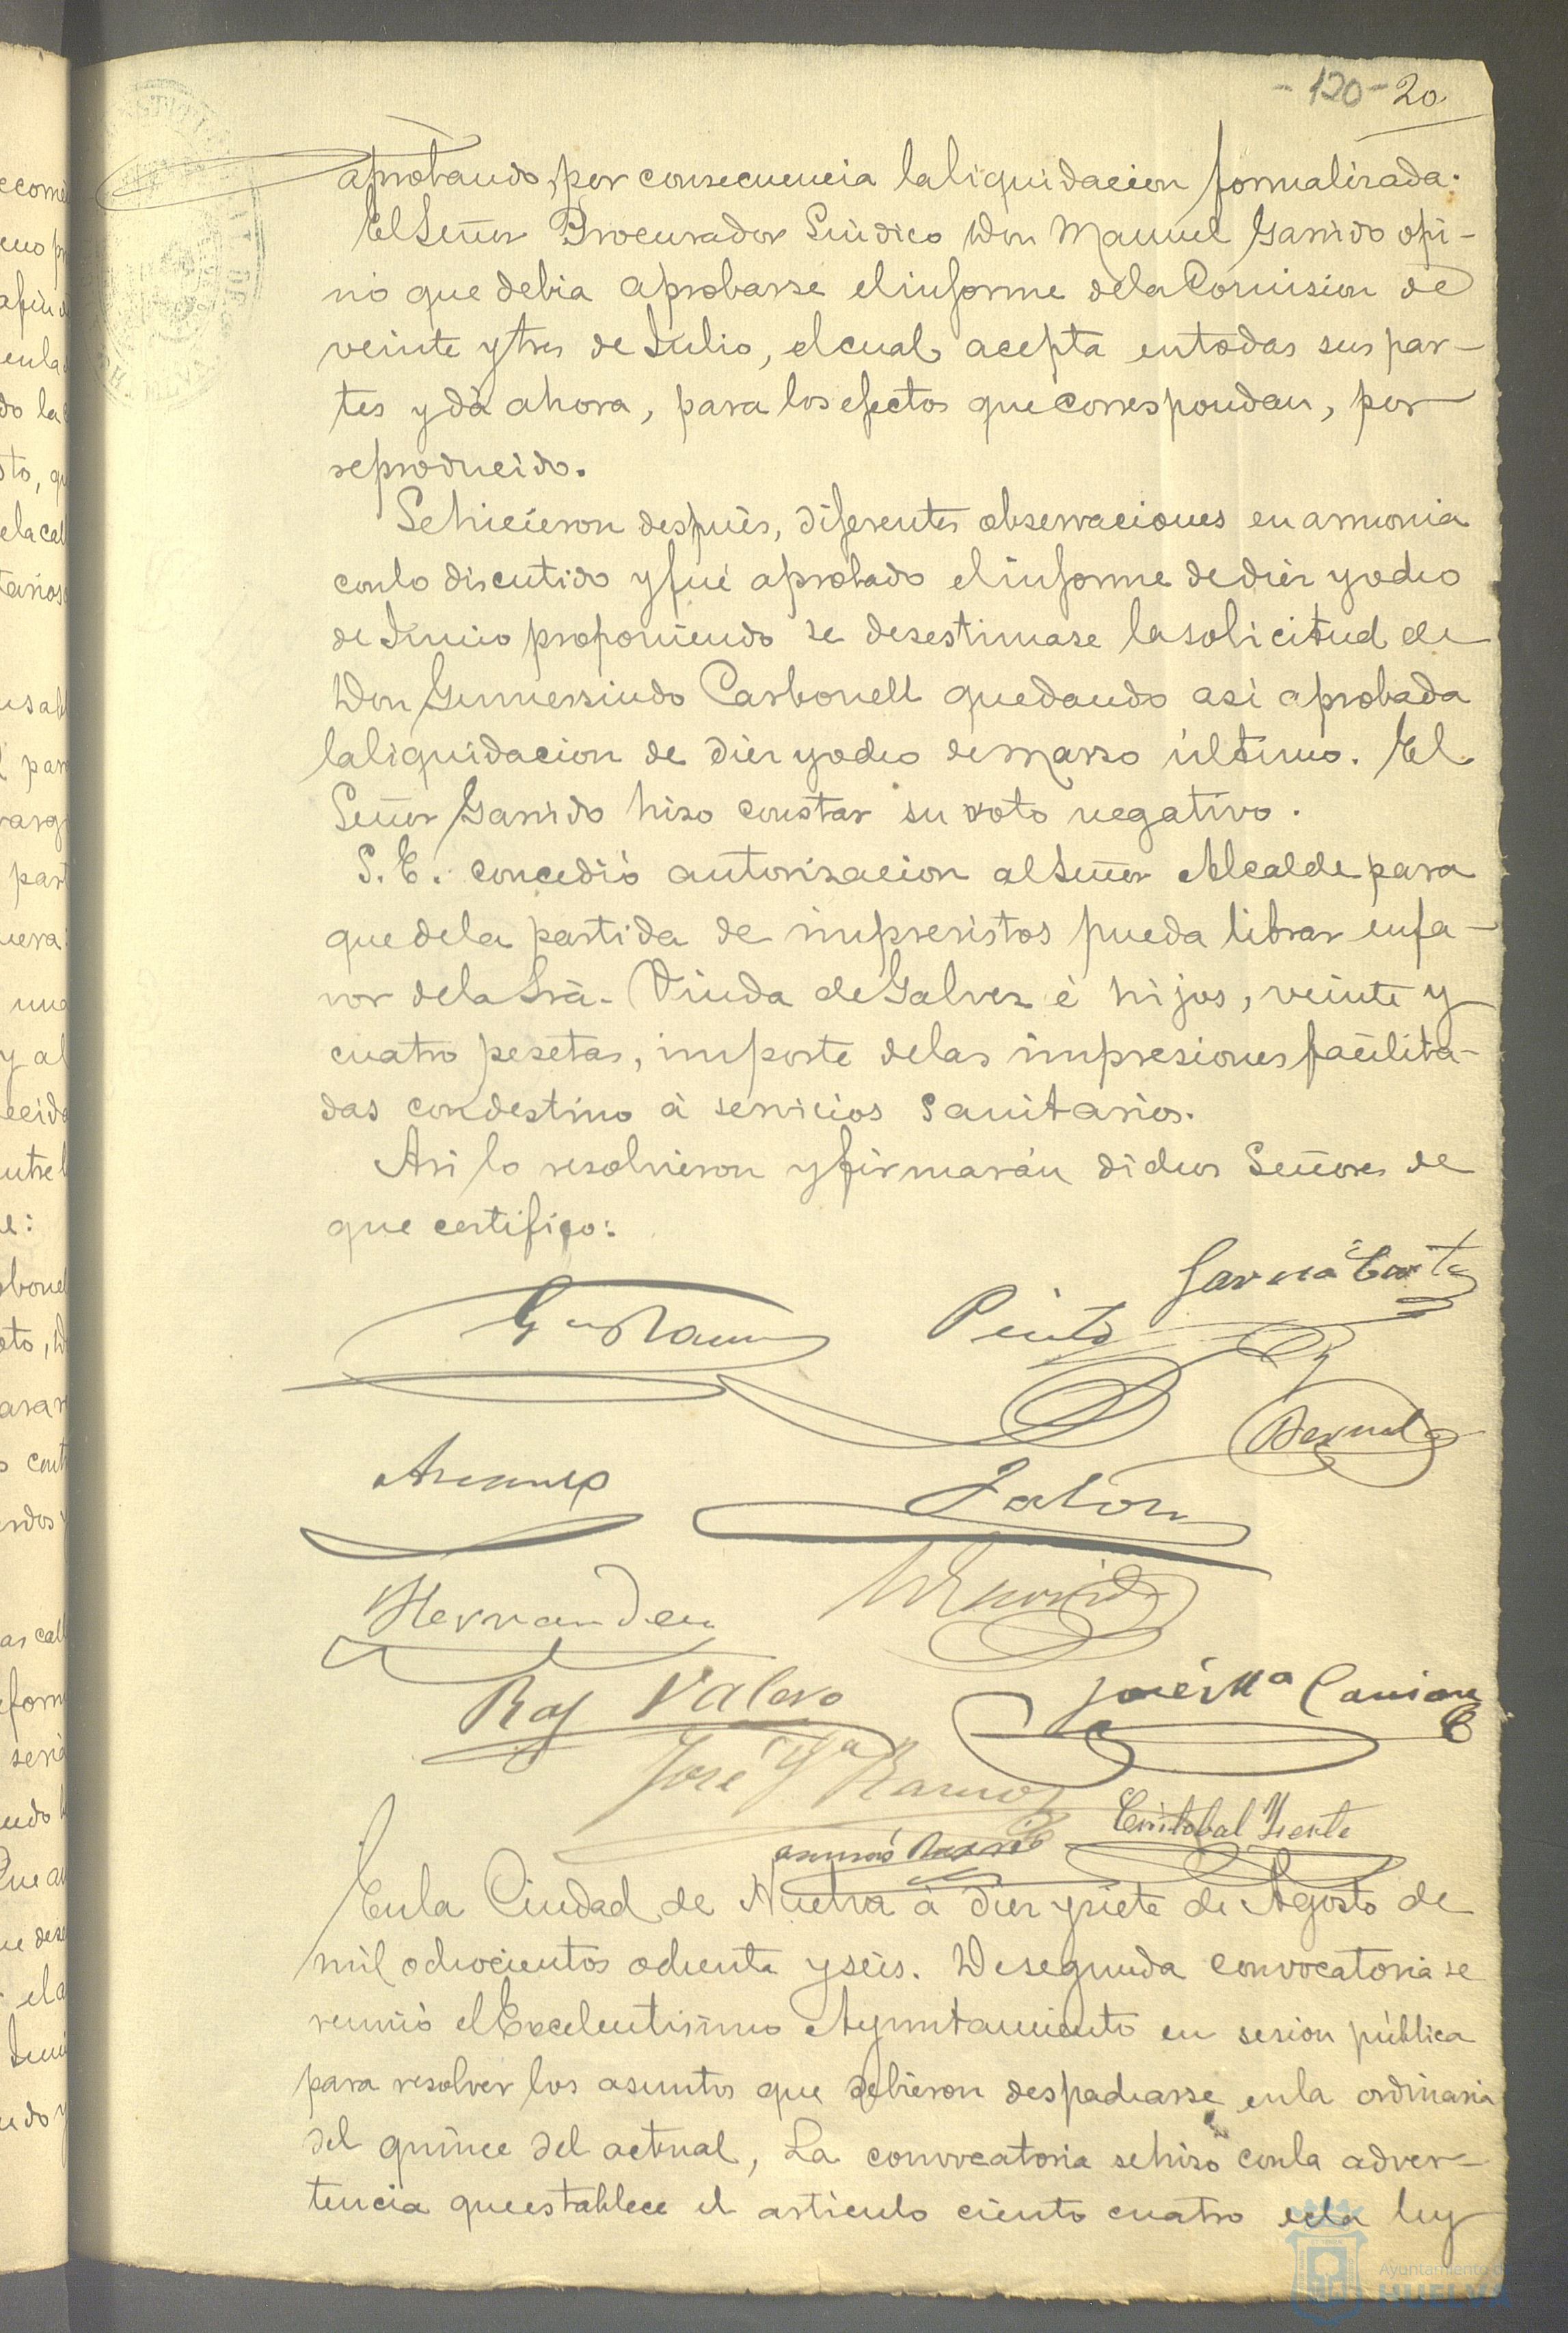 -120- 20
aprobando, por consecuencia la liquidacion formalizada.
El Señor Procurador Sindico Don Manuel Garrido opi-
nó que debia aprobarse el informe de la Comision de
veinte y tres de Julio, el cual acepta en todas sus par-
tes y dá ahora, para los efectos que correspondan, por
reproducido.
Se hicieron despues, diferentes observaciones en armonia
con lo discutido y fué aprobado el informe de diez y ocho
de Junio proponiendo se desestimase la solicitud de
Don Gumersindo Carbonell quedando asi aprobada
la liquidacion de diez y ocho de Marzo último. El
Señor Garrido hizo constar su voto negativo.
S. E. concedió autorizacion al Señor Alcalde para
que de la partida de imprevistos pueda librar en fa-
vor de la Srà. Viuda de Galvez é hijos, veinte y
cuatro pesetas, importe de las impresiones facilita-
das con destino á servicios sanitarios.
Asi lo resolvieron y firmarán dichos Señores de
que certifico:
Garcia
Pinto
Bernal
Jalon
Hernandez
Roj Valero
José Mª
José Mª Ramos
Cristobal
En la Ciudad de Huelva á diez y siete de Agosto de
mil ochocientos ochenta y seis. De segunda convocatoria se
reunió el Excelentisimo Ayuntamiento en sesion pública
para resolver los asuntos que debieron despacharse en la ordinaria
del quince del actual, La convocatoria se hizo con la adver-
tencia que establece el articulo ciento cuatro de la ley
Ayuntamiento de
HUELVA